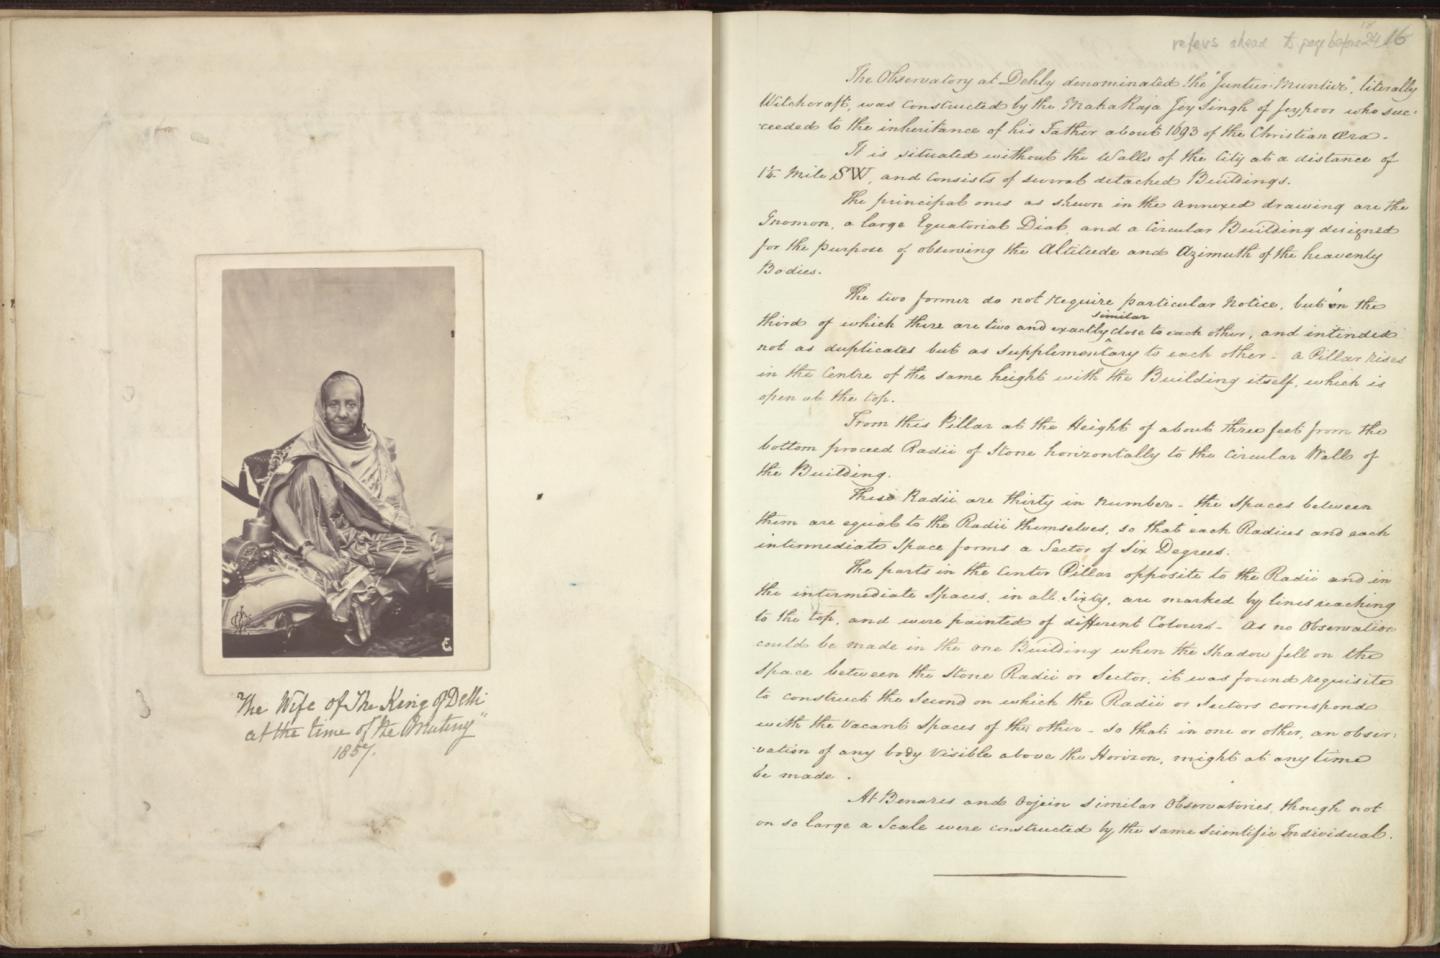 The Wife of The King of Delhi
at the time of the "Mutiny"
1857.
refers ahead to page before 24
16
The Observatory at Dehly denominated the "Juntur Muntur", literally
Witchcraft, was constructed by the Maha Raja Jey Singh of Jeypoor who suc-
ceeded to the inheritance of his Father about 1693 of the Christian Æra -
It is situated without the Walls of the City at a distance of
1¼ Mile SW, and consists of several detached Buildings.
The principal ones as shewn in the annexed drawing are the
Gnomon, a large Equatorial Dial, and a Circular Building designed
for the purpose of observing the Altitude and Azimuth of the heavenly
Bodies.
The two former do not require particular Notice, but in the
similar
third of which there are two and exactly close to each other, and intended
not as duplicates but as Supplementary to each other - a Pillar rises
in the Centre of the same height with the Building itself, which is
open at the top.
From this Pillar at the Height of about three feet from the
bottom proceed Radii of Stone horizontally to the Circular Wall of
the Building.
These Radii are thirty in number - the Spaces between
them are equal to the Radii themselves, so that each Radius and each
intermediate Space forms a Sector of Six Degrees.
The parts in the Center Pillar opposite to the Radii and in
the intermediate Spaces, in all Sixty, are marked by lines reaching
to the top, and were painted of different Colours - As no Observation
could be made in the one Building when the Shadow fell on the
Space between the Stone Radii or Sector, it was found requisite
to construct the Second on which the Radii or Sectors correspond
with the Vacant Spaces of the other - so that in one or other, an obser-
vation of any body visible above the Horizon, might at any time
be made.
At Benares and Oojein similar Observatories, though not
on so large a Scale were constructed by the same Scientific Individual.